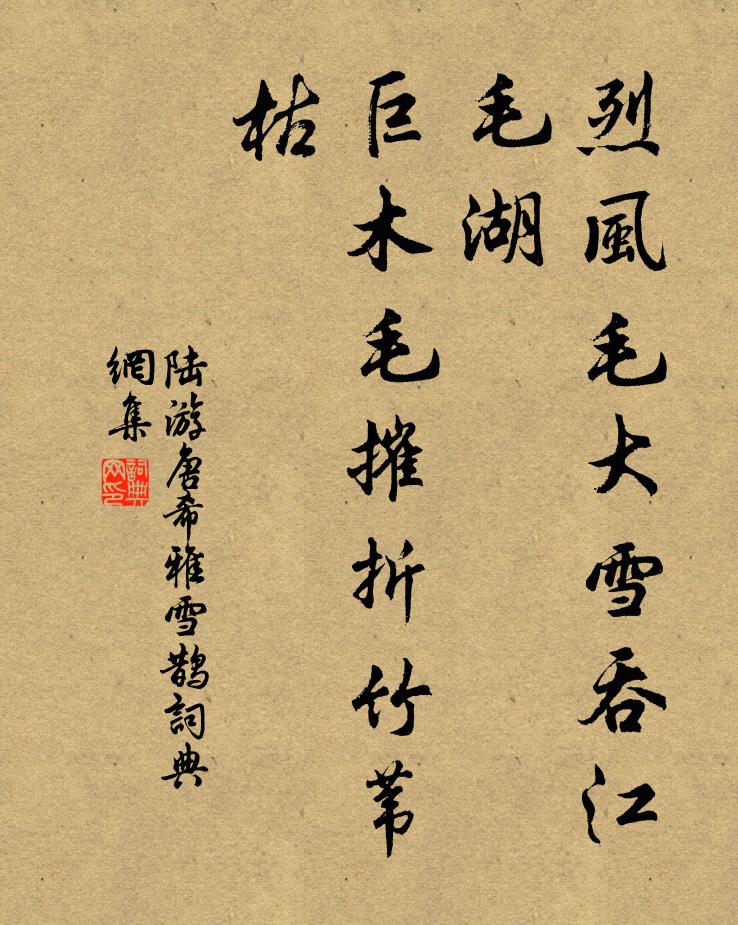 烈風毛大雪吞江
毛湖
巨木毛摧折竹苇
枯
陆游唐希雅雪鹊詞典
網集
詞典
网印